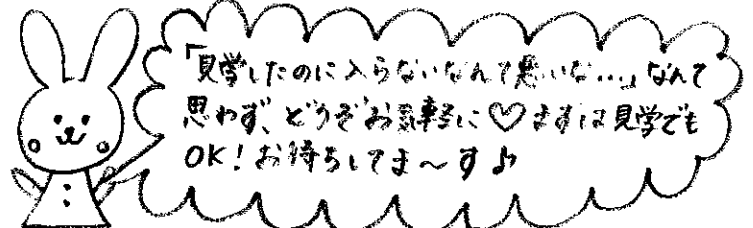 「見学したのに入らないなんて悪いな…」なんて
思わず、どうぞお気軽に♡まずは見学でも
OK！お待ちしてま〜す♪